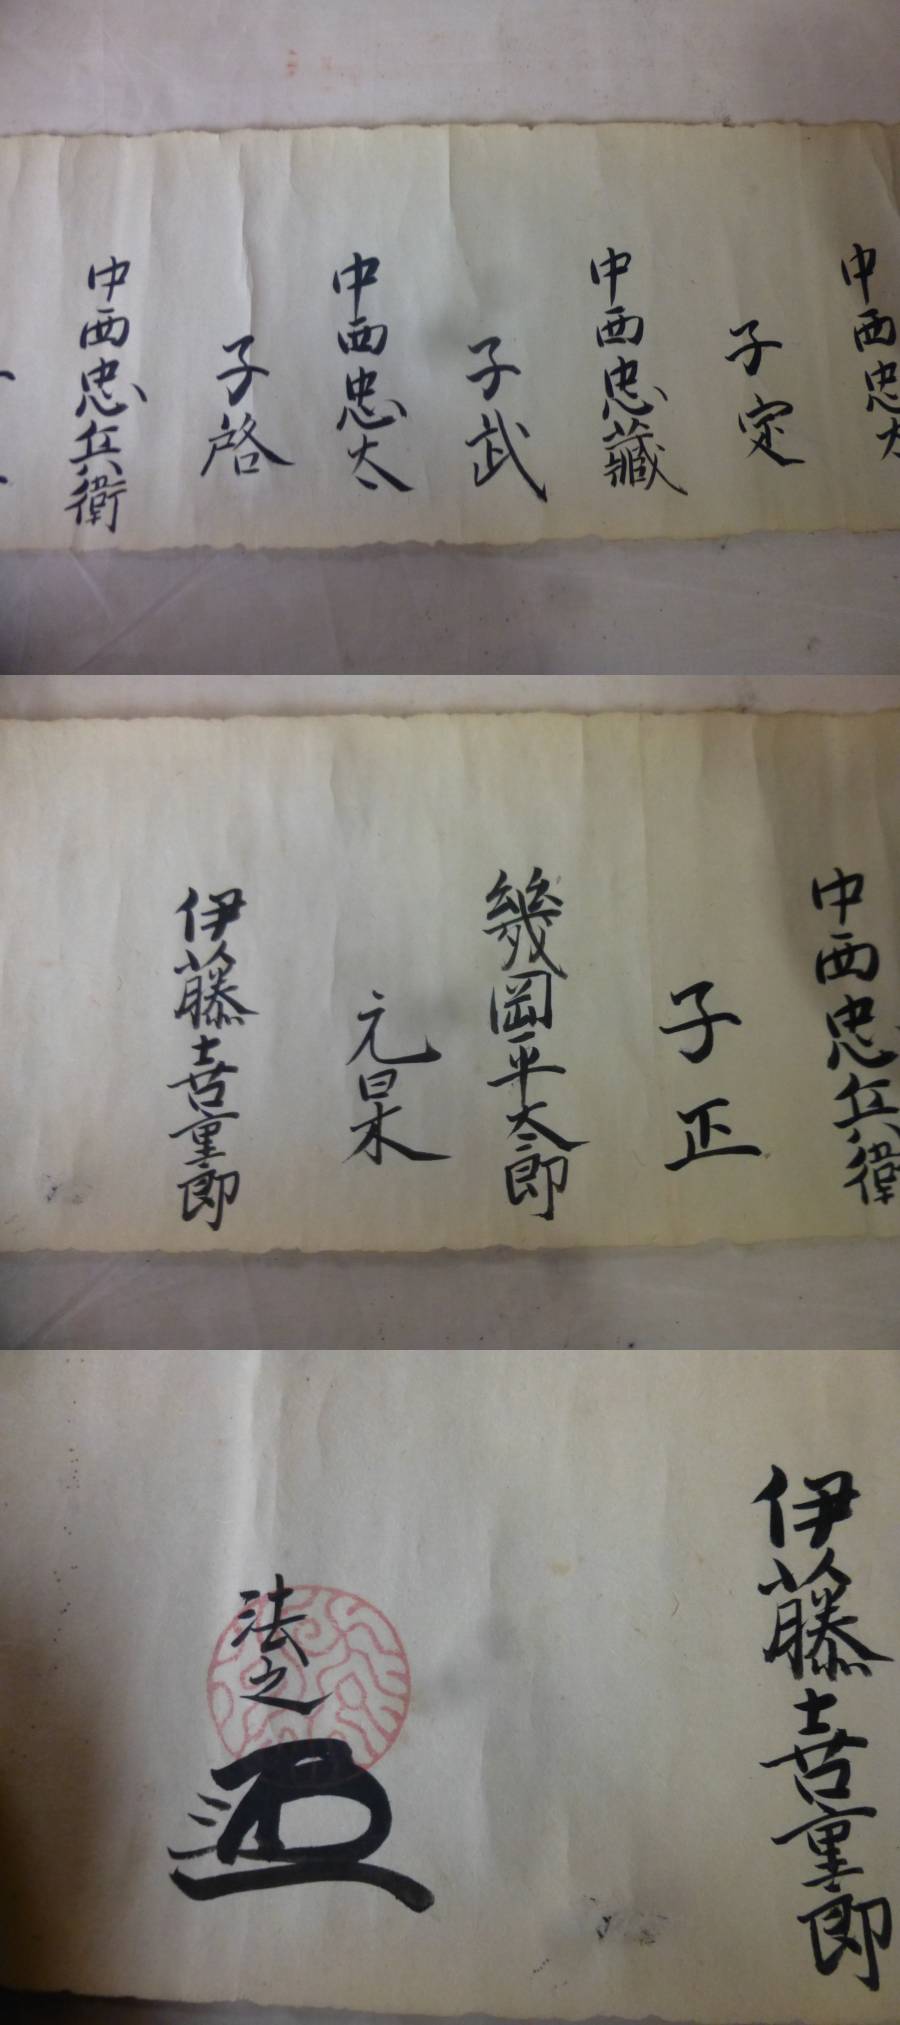 中西忠太
子定
中西忠藏
子武
中西忠太
子啓
中西忠兵衛
中西忠兵衛
子正
幾岡平太郎
元杲
伊藤喜重郎
伊藤喜重郎
法之